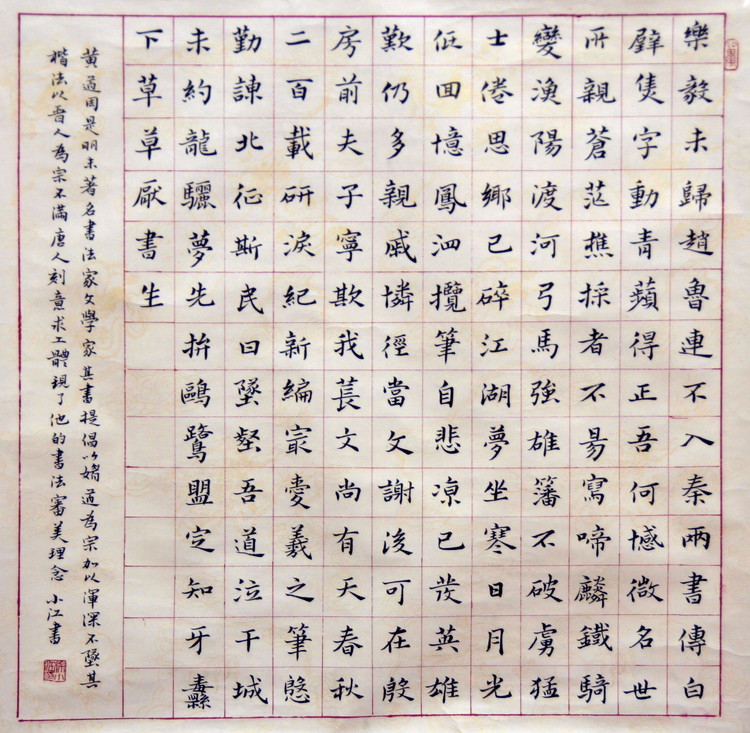 樂毅未歸趙魯連不入秦兩書傳白
璧隻字動青蘋得正吾何憾微名世
所親蒼茫樵採者不易寫啼麟鐵騎
變漁陽渡河弓馬強雄籓不破虜猛
士倦思鄉已碎江湖夢坐寒日月光
低回憶鳳泗攬筆自悲凉已發英雄
歎仍多親戚憐徑當文謝後可在殷
房前夫子寧欺我萇文尚有天春秋
二百載研淚紀新編最愛羲之筆慇
勤諫北征斯民曰墜壑吾道泣干城
未約龍驪夢先拚鷗鷺盟定知牙纛
下草草厭書生
黄道周是明末著名書法家文學家其書提倡以媚遒為宗加以渾深不墜其
楷法以晋人為宗不滿唐人刻意求工體現了他的書法審美理念 小江書